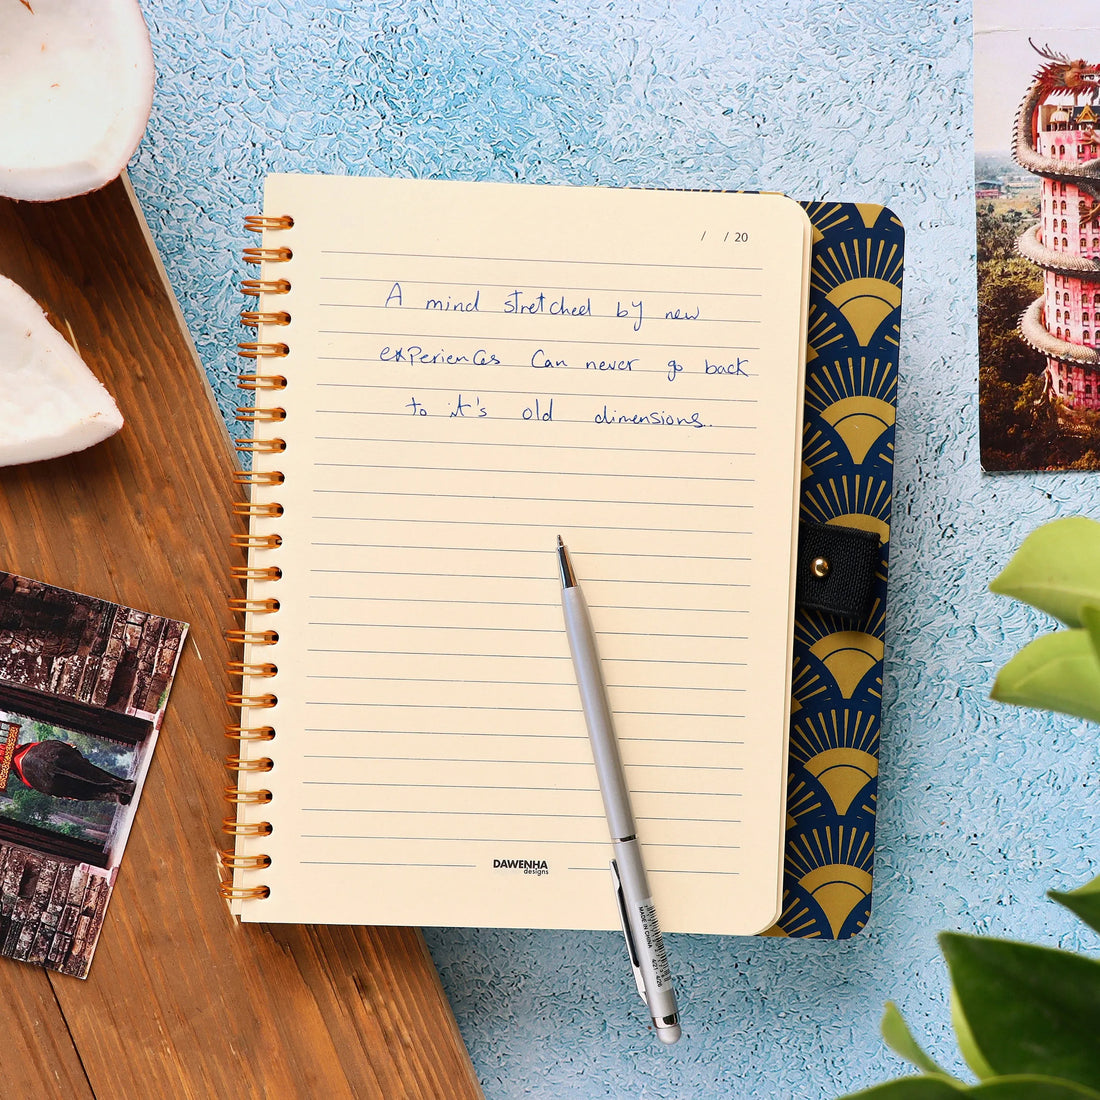 / / 20
A mind stretched by new
experiences Can never go back
to it's old dimensions..
DAWENHA
designs
MADE IN CHINA